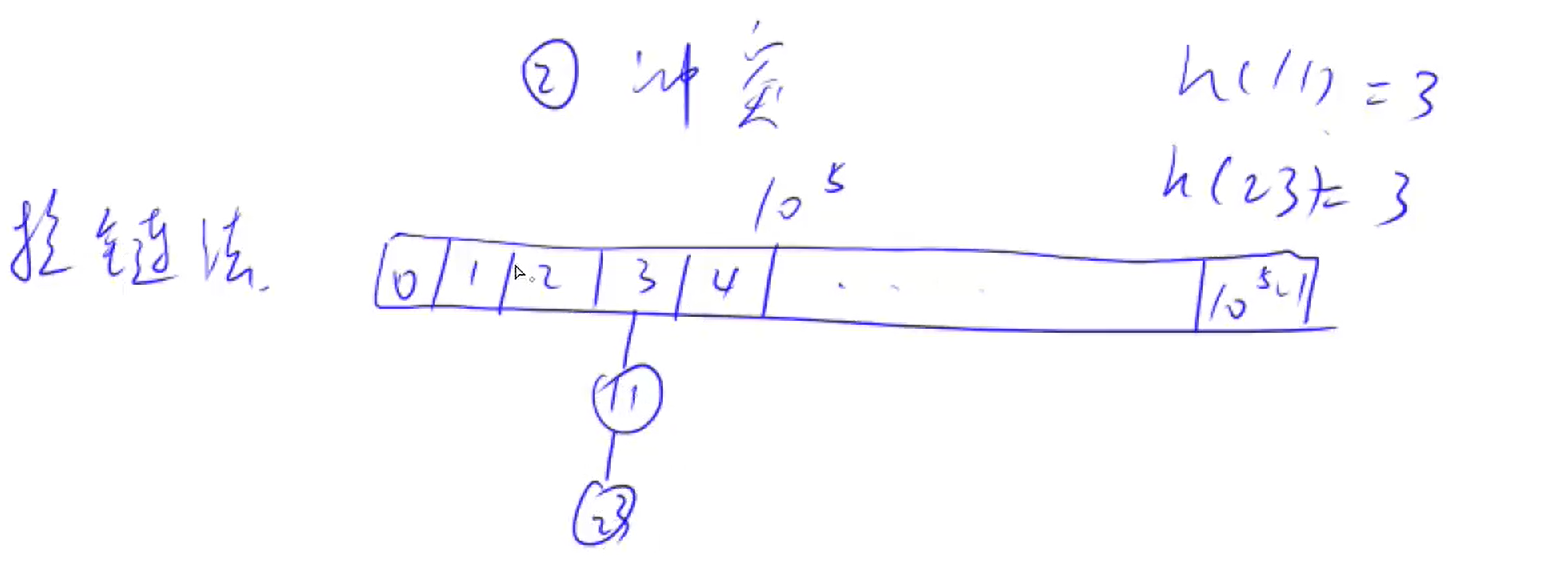 ② 冲突
h(11) = 3
h(23) = 3
10⁵
拉链法
0 1 2 3 4 . . . . 10⁵-1
11
23